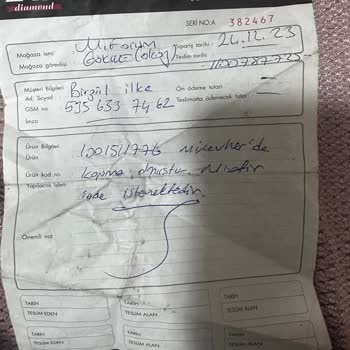 diamond
SERİ NO:A 382467
Mağaza ismi
Mağaza görevlisi
Sipariş tarihi : 24.12.23
Teslim tarihi :
Müşteri Bilgileri
Ad, Soyad Birgül ilke
GSM no 535 633 74 62
İmza
Ön ödeme tutarı
Teslimatta ödenecek tutar
Ürün Bilgileri
Ürün
Ürün kod no
Yapılacak işlem
kopma olmuştur. Misafir
iade istemektedir.
Önemli not
TARİH
TESLİM EDEN
TARİH
TESLİM ALAN
TARİH
TESLİM ALAN
TARİH
TESLİM EDEN
TARİH
TESLİM ALAN
TARİH
TESLİM ALAN